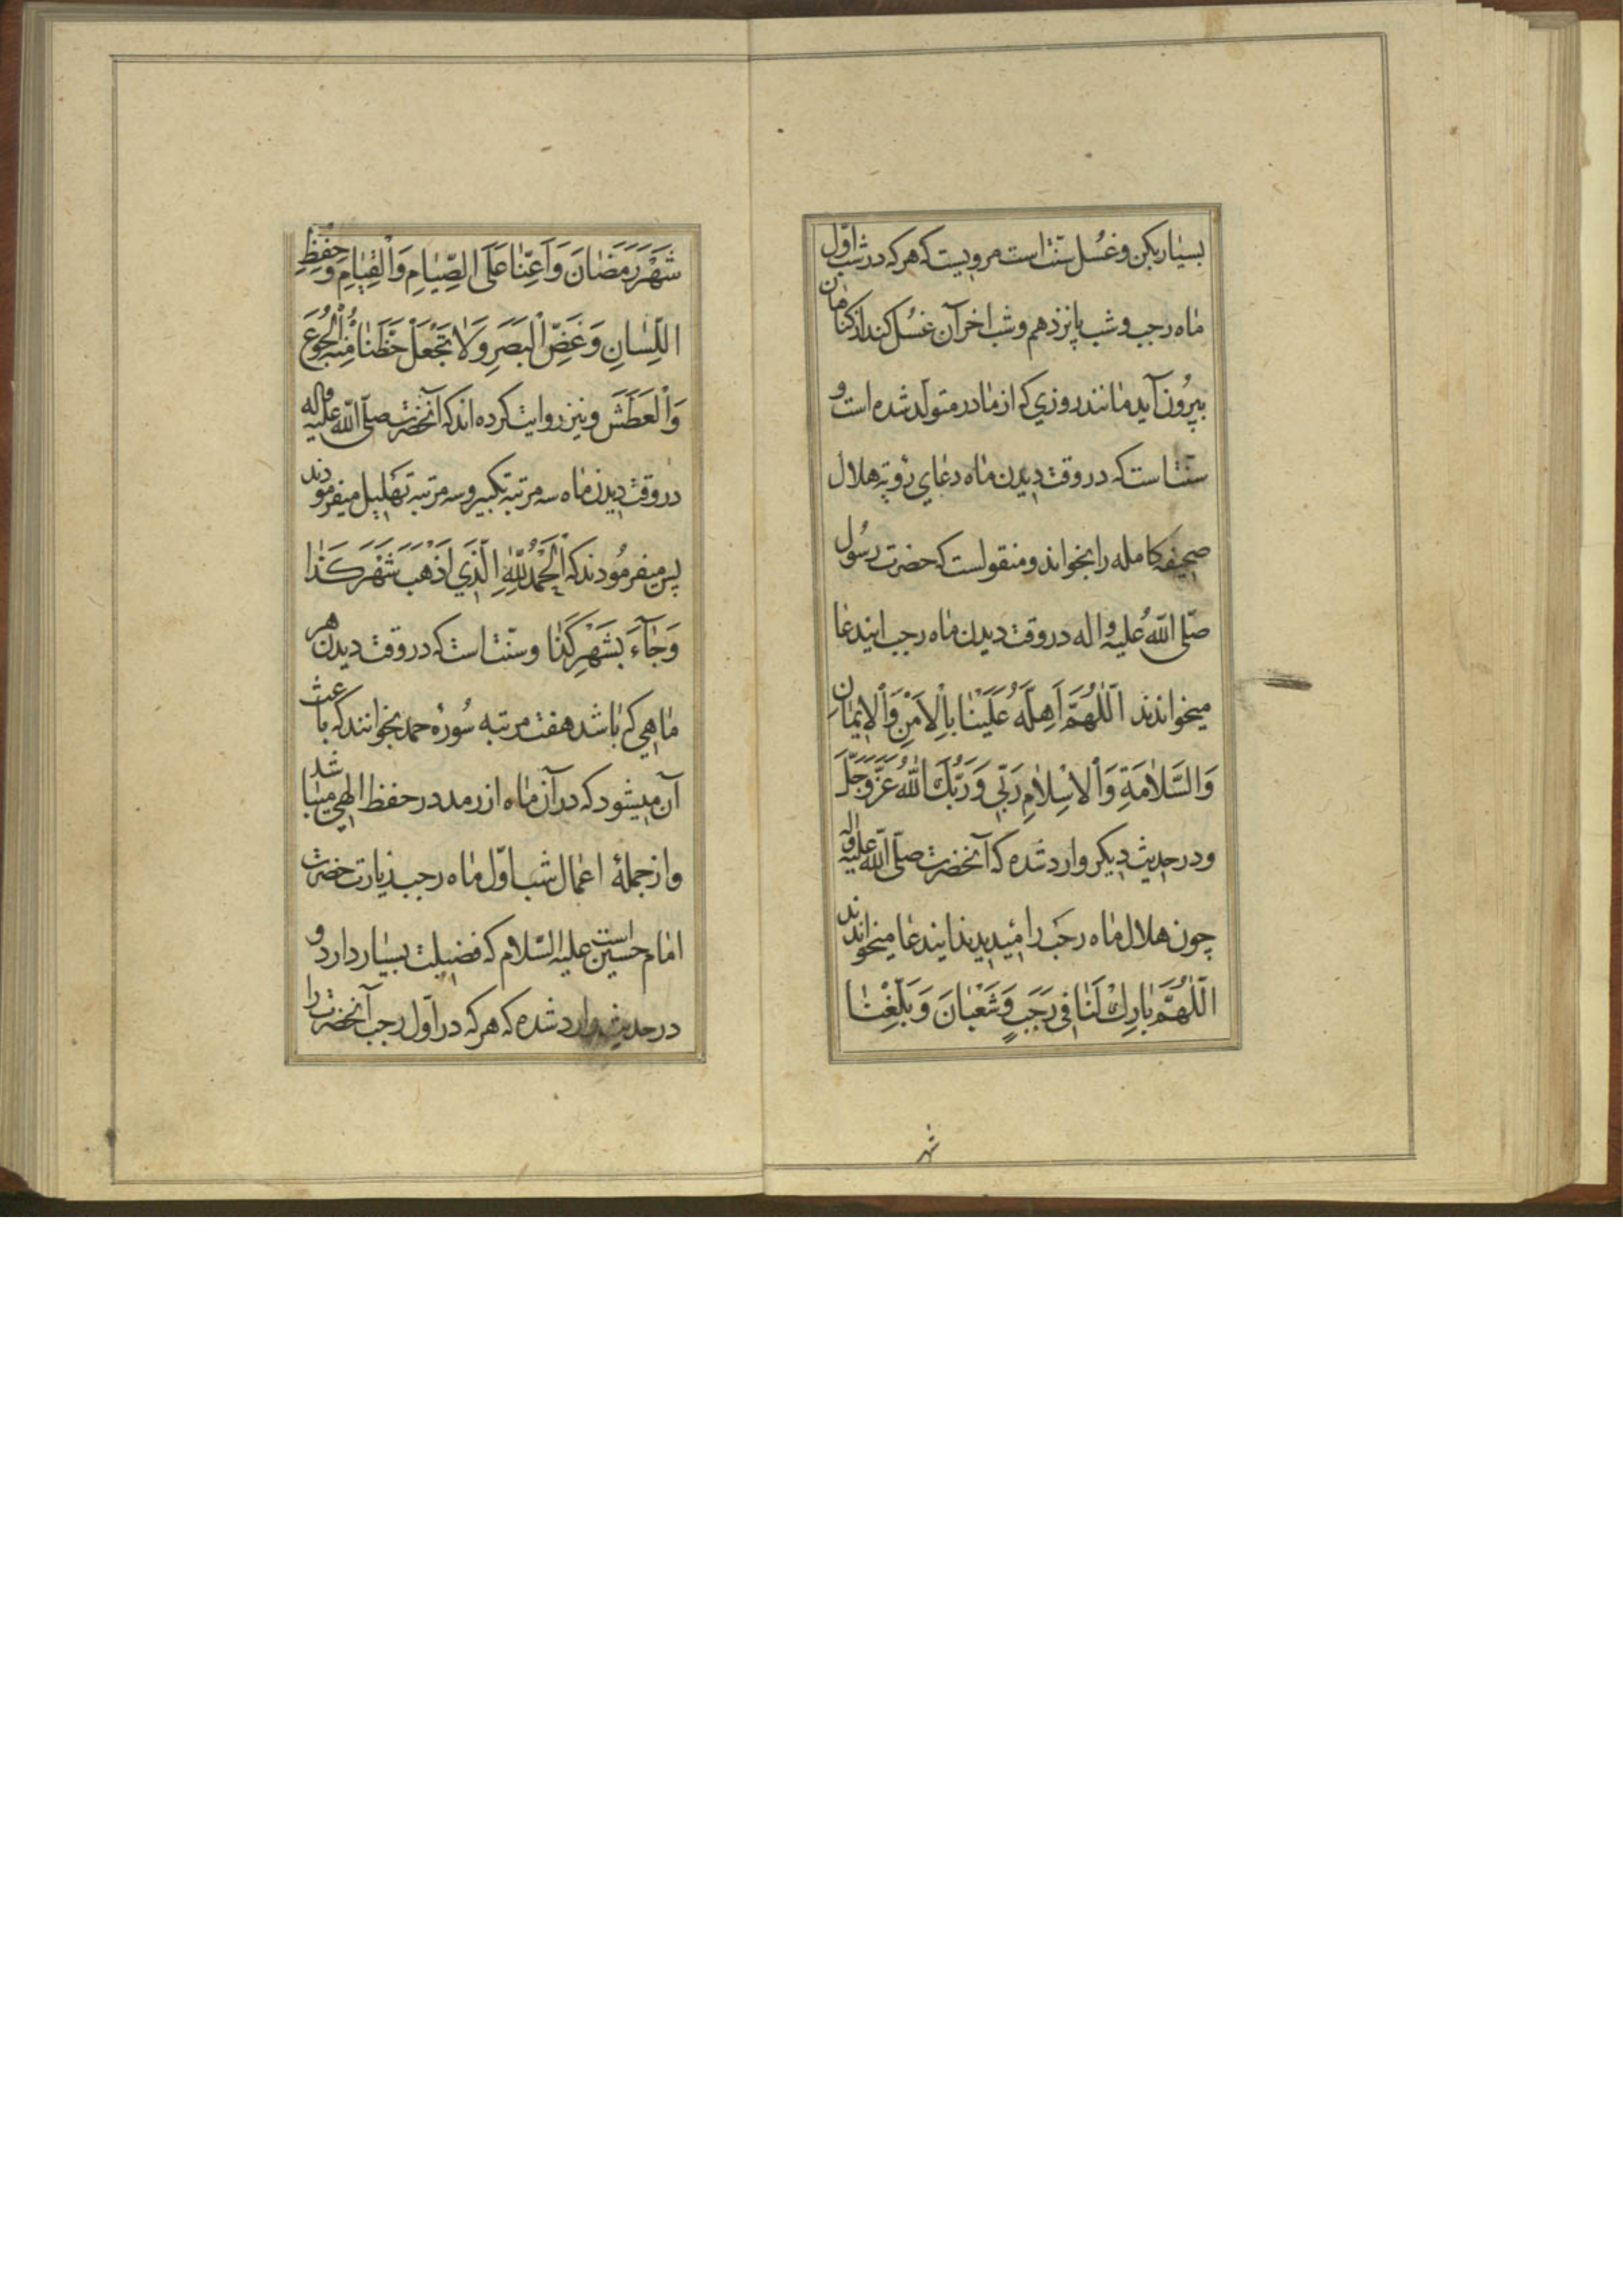 بسیار بکن و غسل سنّت است مرویست که هر که در شب اوّل
ماه رجب و شب پانزدهم و شب اخر آن غسل کند از کناهان
بیرُون آید مانند روزی که از مادر متولّد شده است و
سنّت است که در وقت دیدن ماه دعای رؤیة هلال
صحیفه کامله را بخواند و منقولست که حضرت رسُول
صلّی اللّهُ علیه و اله در وقت دیدن ماه رجب ایندعا
میخواندند اَللّٰهُمَّ اَهِلَّهُ عَلَیْنَا بِالْاَمْنِ وَالْاِیمَانِ
وَالسَّلَامَةِ وَالْاِسْلَامِ رَبِّی وَرَبُّكَ اللّٰهُ عَزَّ وَجَلَّ
و در حدیث دیکر وارد شده که آنحضرت صلّی اللّه علیه و اله
چون هلال ماه رجب را میدیدند ایندعا میخواندند
اَللّٰهُمَّ بَارِكْ لَنَا فِی رَجَبٍ وَشَعْبَانَ وَبَلِّغْنَا
شهر
شَهْرَ رَمَضَانَ وَاَعِنَّا عَلَی الصِّیَامِ وَالْقِیَامِ وَحِفْظِ
اللِّسَانِ وَغَضِّ الْبَصَرِ وَلَا تَجْعَلْ حَظَّنَا مِنْهُ الْجُوعَ
وَالْعَطَشَ و نیز روایت کرده اند که آنحضرت صلّی اللّه علیه و اله
در وقت دیدن ماه سه مرتبه تکبیر و سه مرتبه تهلیل میفرمودند
پس میفرمُودند که اَلْحَمْدُ لِلّٰهِ الَّذِی اَذْهَبَ شَهْرَ كَذَا
وَجَآءَ بِشَهْرِ كَذَا و سنّت است که در وقت دیدن هر
ماهی که باشد هفت مرتبه سُورهٔ حمد بخوانند که باعث
آن میشود که در آن ماه از رمد در حفظ الهی میباشد
و از جملهٔ اعمال شب اوّل ماه رجب زیارت حضرت
امام حسین علیه السّلام است که فضیلت بسیار دارد و
در حدیث وارد شده که هر که در اوّل رجب آنحضرت را